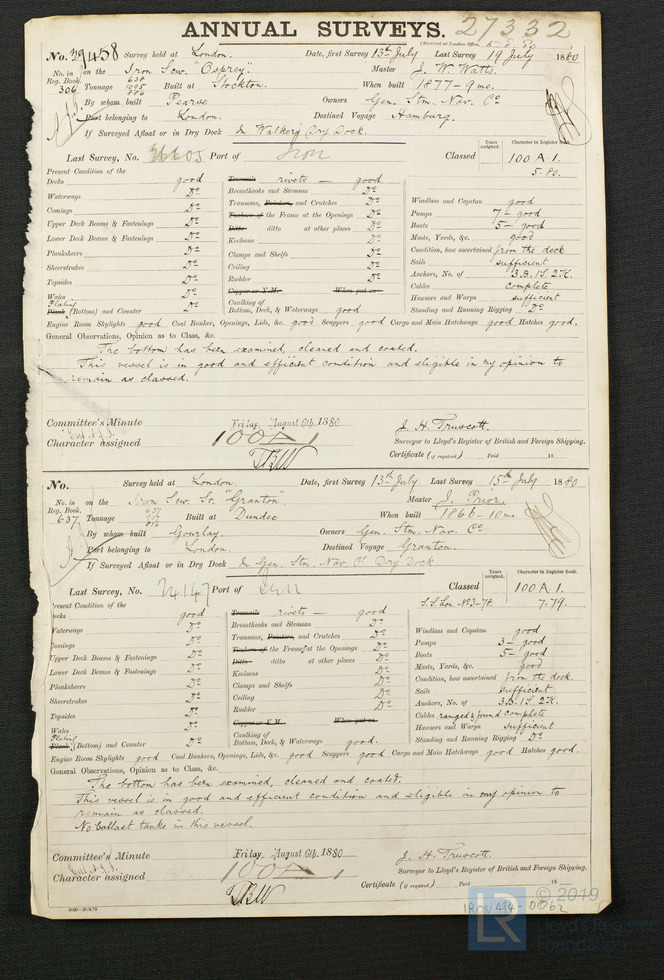 ANNUAL SURVEYS. 27332
(Received at London Office, 5.8.80
No. 29458 Survey held at London. Date, first Survey 13th July Last Survey 19 July 1880
No. in Reg. Book. 306 on the Iron Scw. "Osprey" Master J. W. Watts.
Tonnage 638 1095 886 Built at Stockton. When built 1877 - 9 mo.
By whom built Pearse Owners Gen. Stm. Nav. Co
Port belonging to London. Destined Voyage Hamburg.
If Surveyed Afloat or in Dry Dock In Walker's Dry Dock.
Last Survey, No. 26603 Port of Lon Classed Years assigned. Character in Register Book. 100 A 1. 5.80.
Present Condition of the
Decks good
Waterways Do
Comings Do
Upper Deck Beams & Fastenings Do
Lower Deck Beams & Fastenings Do
Planksheers Do
Sheerstrakes Do
Topsides Do
Wales Do
Plating
Plank (Bottom) and Counter Do
Treenails rivets — good
Breasthooks and Stemson Do
Transoms, Pointers, and Crutches Do
Timbers of the Frame at the Openings Do
Ditto ditto at other places Do
Keelsons Do
Clamps and Shelfs Do
Ceiling Do
Rudder Do
Copper or Y.M. When put on
Caulking of
Bottom, Deck, & Waterways good
Windlass and Capstan good
Pumps 7 - good
Boats 5 - good
Masts, Yards, &c. good
Condition, how ascertained from the deck
Sails sufficient
Anchors, No. of 3.B. 1S. 2K.
Cables complete
Hawsers and Warps sufficient
Standing and Running Rigging Do
Engine Room Skylights good Coal Bunker, Openings, Lids, &c. good Scuppers good Cargo and Main Hatchways good Hatches good.
General Observations, Opinion as to Class, &c.
The bottom has been examined, cleaned and coated.
This vessel is in good and efficient condition and eligible in my opinion to
remain as classed.
Committee's Minute Friday, August 6th, 1880
Character assigned 100A1
J. H. Truscott.
Surveyor to Lloyd's Register of British and Foreign Shipping.
Certificate (if required) Paid 18
No. Survey held at London. Date, first Survey 13th July Last Survey 15th July 1880
No. in Reg. Book. 637 on the Iron Scw. Sr. "Granton". Master J. Prior.
Tonnage 637 Built at Dundee When built 1866 - 10 mo.
By whom built Gourlay. Owners Gen. Stm. Nav. Co.
Port belonging to London. Destined Voyage Granton.
If Surveyed Afloat or in Dry Dock In Gen. Stm. Nav. Co Dry Dock
Last Survey, No. 24147 Port of Lon Classed Years assigned. Character in Register Book. 100 A 1.
S.S. Lon. No3-78. 7.79.
Present Condition of the
Decks good
Waterways Do
Comings Do
Upper Deck Beams & Fastenings Do
Lower Deck Beams & Fastenings Do
Planksheers Do
Sheerstrakes Do
Topsides Do
Wales Do
Plating
Plank (Bottom) and Counter Do
Treenails rivets — good
Breasthooks and Stemson Do
Transoms, Pointers, and Crutches Do
Timbers of the Frame at the Openings Do
Ditto ditto at other places Do
Keelsons Do
Clamps and Shelfs Do
Ceiling Do
Rudder Do
Copper or Y.M. When put on
Caulking of
Bottom, Deck, & Waterways good.
Windlass and Capstan good
Pumps 3 - good
Boats 5 - good
Masts, Yards, &c. good
Condition, how ascertained from the deck.
Sails sufficient
Anchors, No. of 3.B. 1S. 2K.
Cables ranged & found complete
Hawsers and Warps sufficient
Standing and Running Rigging Do
Engine Room Skylights good Coal Bunkers, Openings, Lids, &c. good Scuppers good Cargo and Main Hatchways good Hatches good.
General Observations, Opinion as to Class, &c.
The bottom has been examined, cleaned and coated.
This vessel is in good and efficient condition and eligible in my opinion to
remain as classed.
No ballast tanks in this vessel.
Committee's Minute Friday, August 6th, 1880
Character assigned 100A1
J. H. Truscott.
Surveyor to Lloyd's Register of British and Foreign Shipping.
Certificate (if required) Paid 18
IRON 494-0062
LR © 2019
Lloyd's Register
Foundation